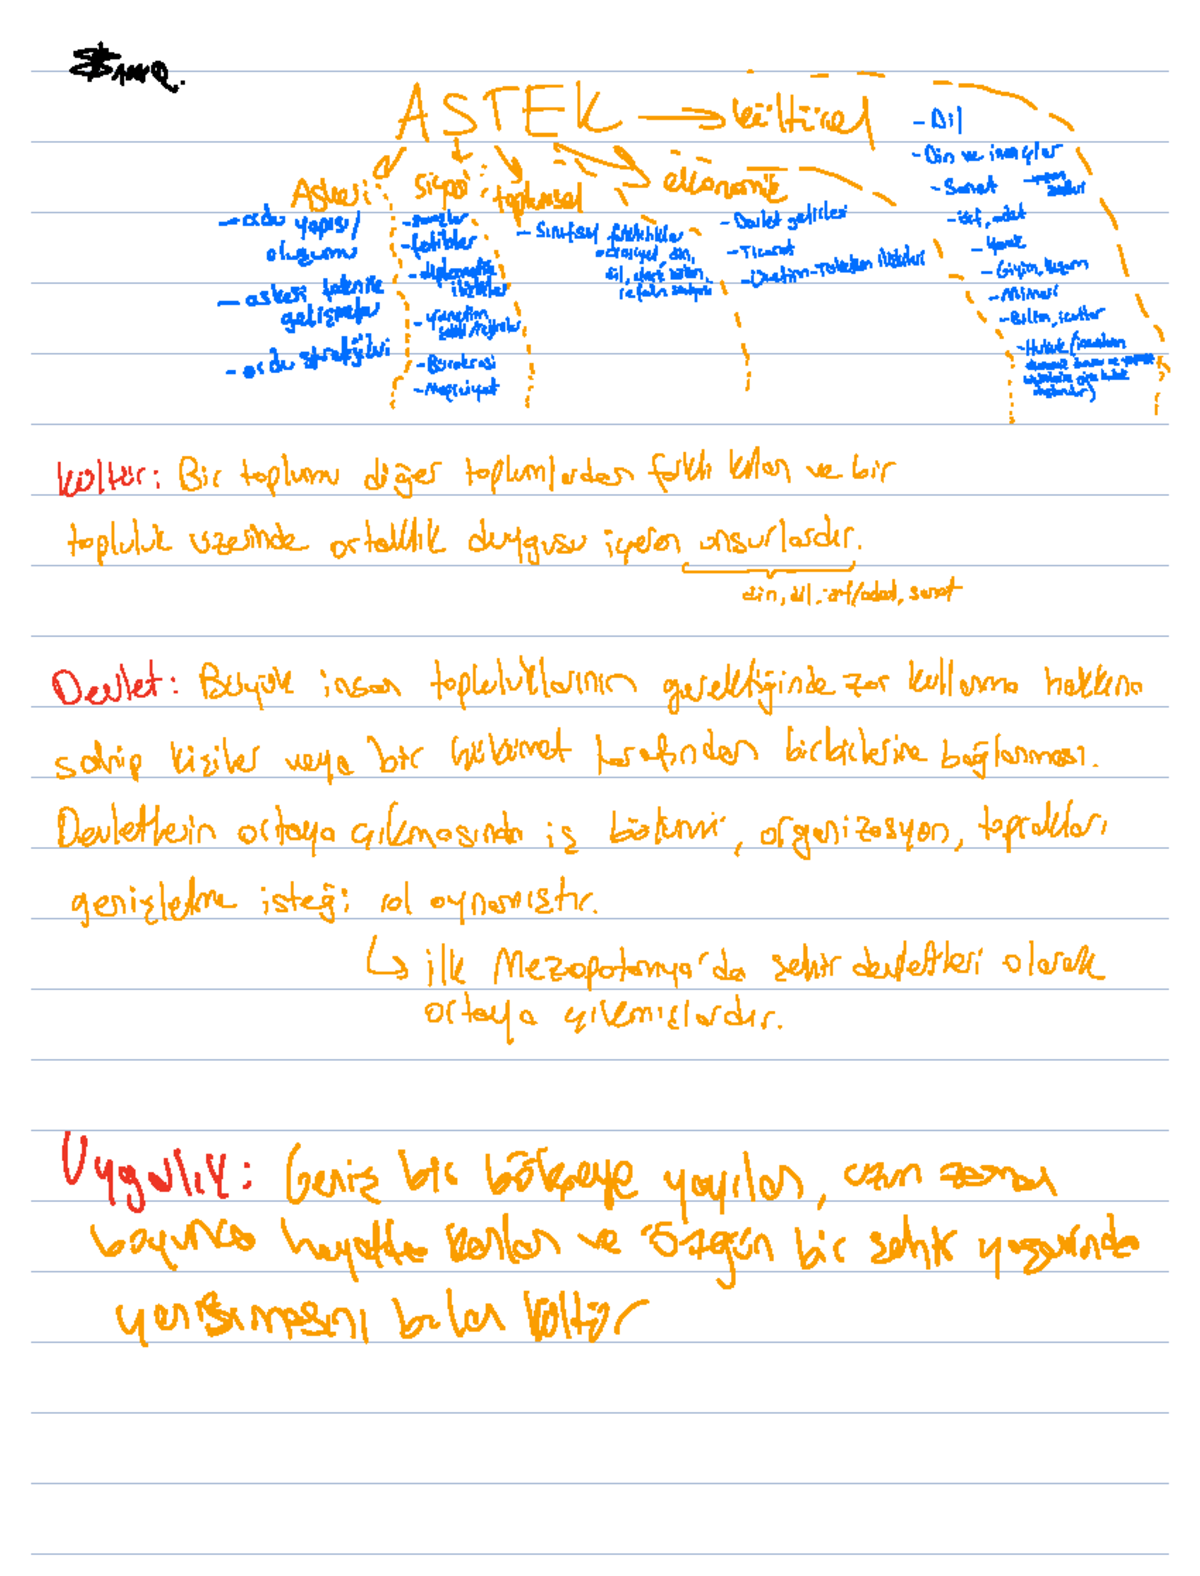 ASTEK → kültürel
Askeri
siyasi
toplumsal
ekonomik
- ordu yapısı/
oluşumu
- askeri teknik
gelişmeler
- ordu stratejileri
- savaşlar
- fetihler
- diplomatik
ilişkiler
- yönetim
- Bürokrasi
- Meşruiyet
- Sınıfsal farklılıklar
din,
dil,
- Devlet gelirleri
- Ticaret
- Üretim-Tüketim ilişkileri
- Dil
- Din ve inançlar
- Sanat
- örf, adet
- Yemek
- Giyim, kuşam
- Mimari
- Bilim, icatlar
- Hukuk
Kültür: Bir toplumu diğer toplumlardan farklı kılan ve bir
topluluk üzerinde ortaklık duygusu içeren unsurlardır.
din, dil, örf/adet, sanat
Devlet: Büyük insan topluluklarının gerektiğinde zor kullanma hakkına
sahip kişiler veya bir hükümet tarafından birbirlerine bağlanması.
Devletlerin ortaya çıkmasında iş bölümü, organizasyon, toprakları
genişletme isteği rol oynamıştır.
↳ ilk Mezopotamya'da şehir devletleri olarak
ortaya çıkmışlardır.
Uygarlık: Geniş bir bölgeye yayılan, uzun zaman
boyunca hayatta kalan ve özgün bir şehir yaşamında
yansımasını bulan kültür